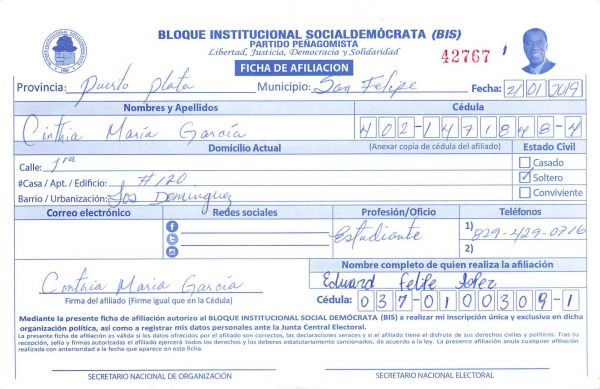 BLOQUE INSTITUCIONAL SOCIALDEMÓCRATA (BIS)
PARTIDO PEÑAGOMISTA
Libertad, Justicia, Democracia y Solidaridad
42767
FICHA DE AFILIACION
Provincia: Puerto Plata Municipio: San Felipe Fecha: 21/01/2019
Nombres y Apellidos Cédula
Cinthia María García 402-1471848-4
Domicilio Actual (Anexar copia de cédula del afiliado) Estado Civil
Calle: 1ra Casado
#Casa / Apt. / Edificio: #120 Soltero
Barrio / Urbanización: Los Dominguez Conviviente
Correo electrónico Redes sociales Profesión/Oficio Teléfonos
Estudiante 1) 829-429-0716
2)
Nombre completo de quien realiza la afiliación
Cinthia Maria García Eduard Felipe
Firma del afiliado (Firme igual que en la Cédula) Cédula: 037-0100309-1
Mediante la presente ficha de afiliación autorizo al BLOQUE INSTITUCIONAL SOCIAL DEMÓCRATA (BIS) a realizar mi inscripción única y exclusiva en dicha
organización política, así como a registrar mis datos personales ante la Junta Central Electoral.
La presente ficha de afiliación es válida si los datos ofrecidos por el afiliado son correctos, las declaraciones veraces y si el afiliado tiene el disfrute de sus derechos civiles y políticos. Tras su
recepción, sello y firmas autorizadas el afiliado ejercerá todos los derechos y los deberes estatutariamente sancionados, de acuerdo a la ley. La presente afiliación anula cualquier afiliación
realizada con anterioridad a la fecha que aparece en esta ficha.
SECRETARIO NACIONAL DE ORGANIZACIÓN SECRETARIO NACIONAL ELECTORAL